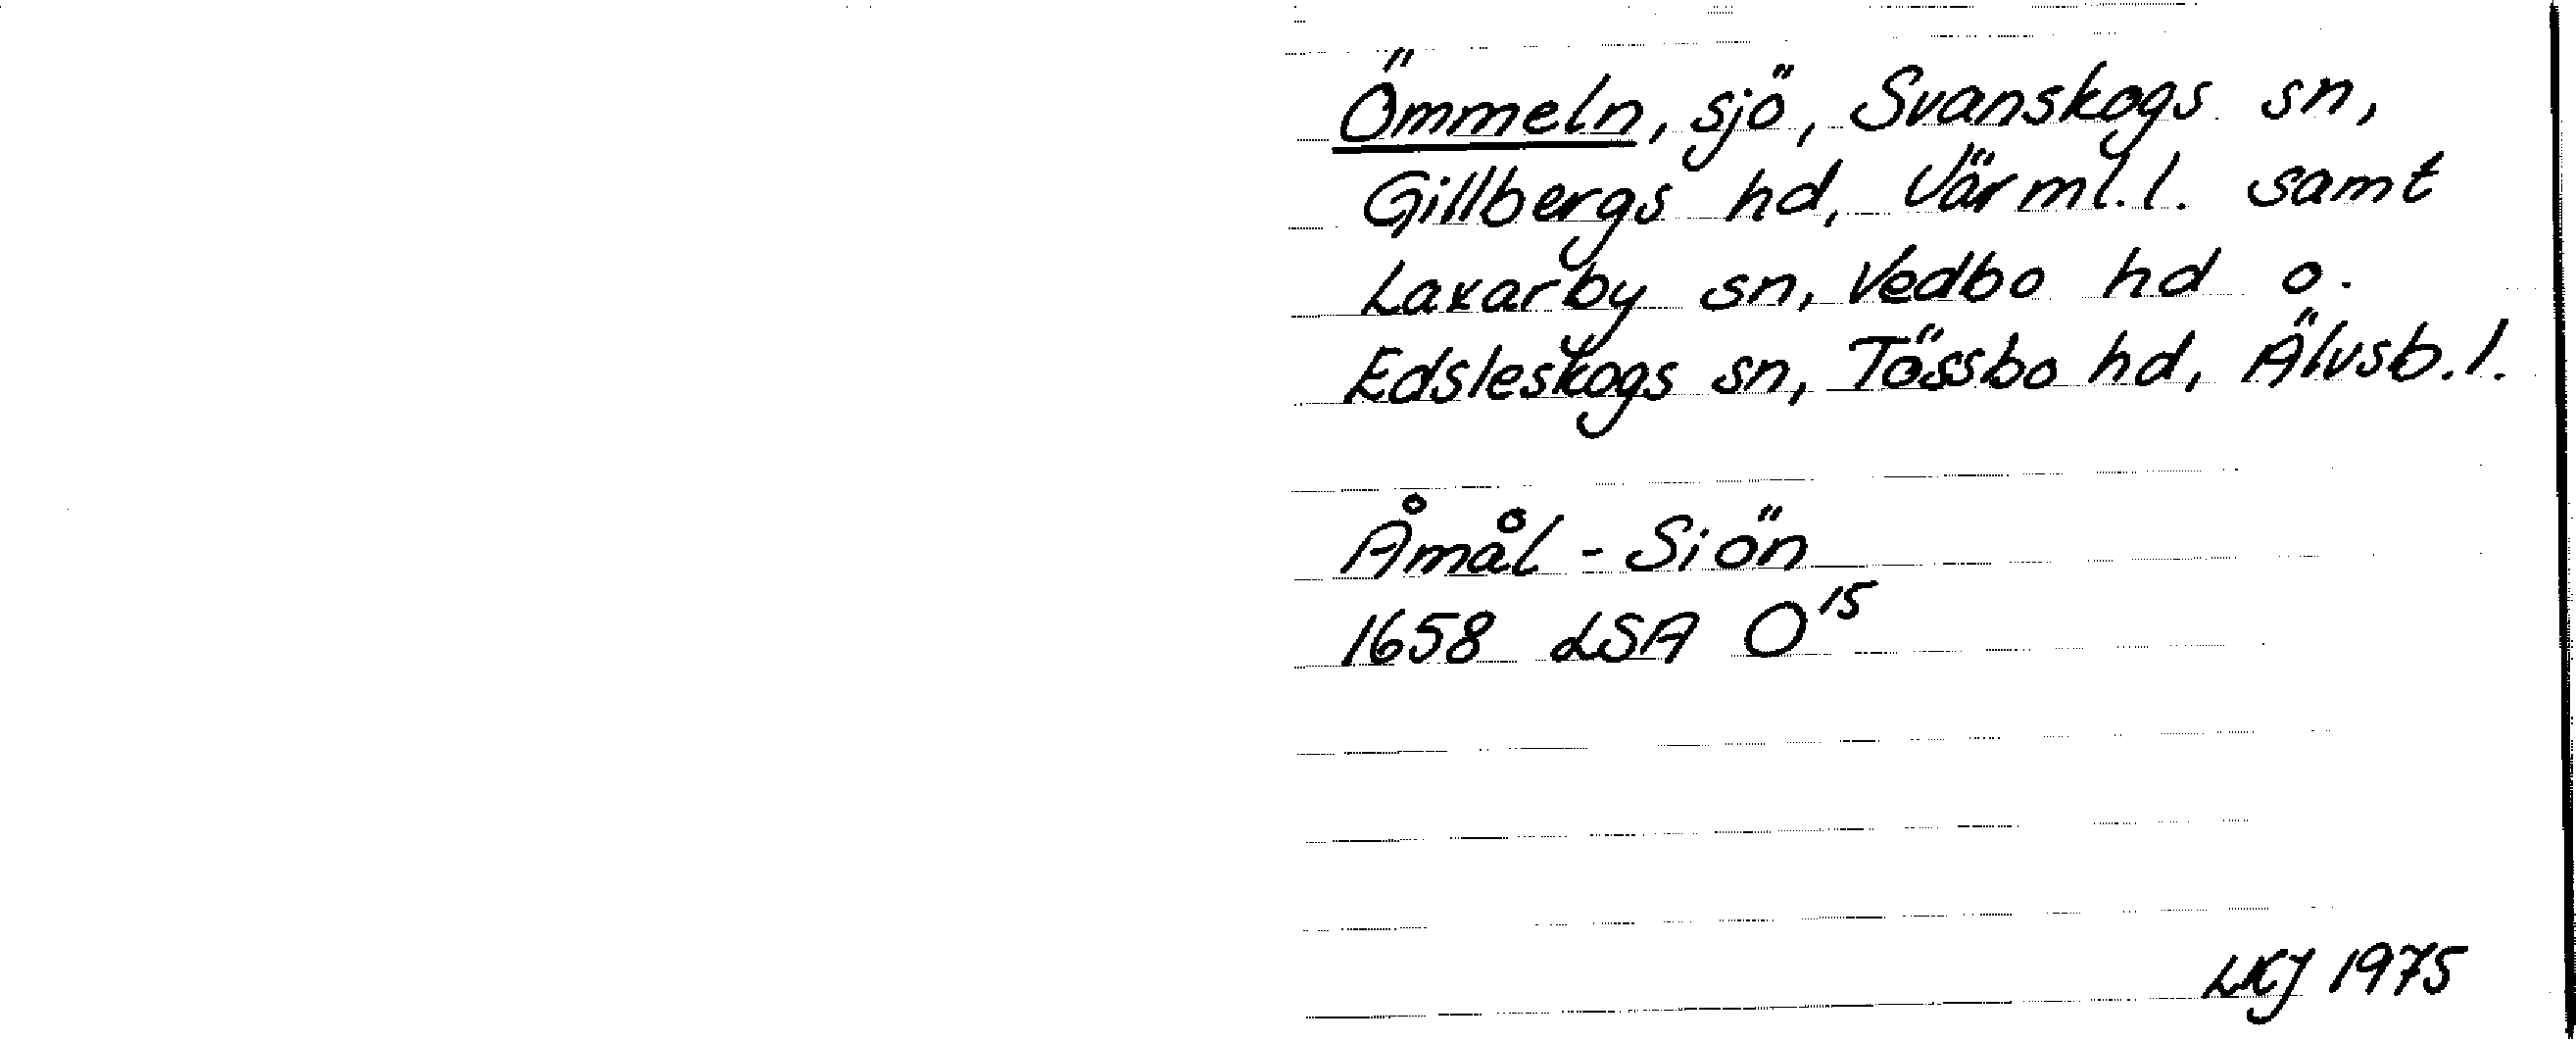 Ömmeln, sjö, Svanskogs sn,
Gillbergs hd, Värml.l. samt
Laxarby sn, Vedbo hd o.
Edsleskogs sn, Tössbo hd, Älvsb.l.
Åmål - Siön
1658 LSA O15
LKJ 1975